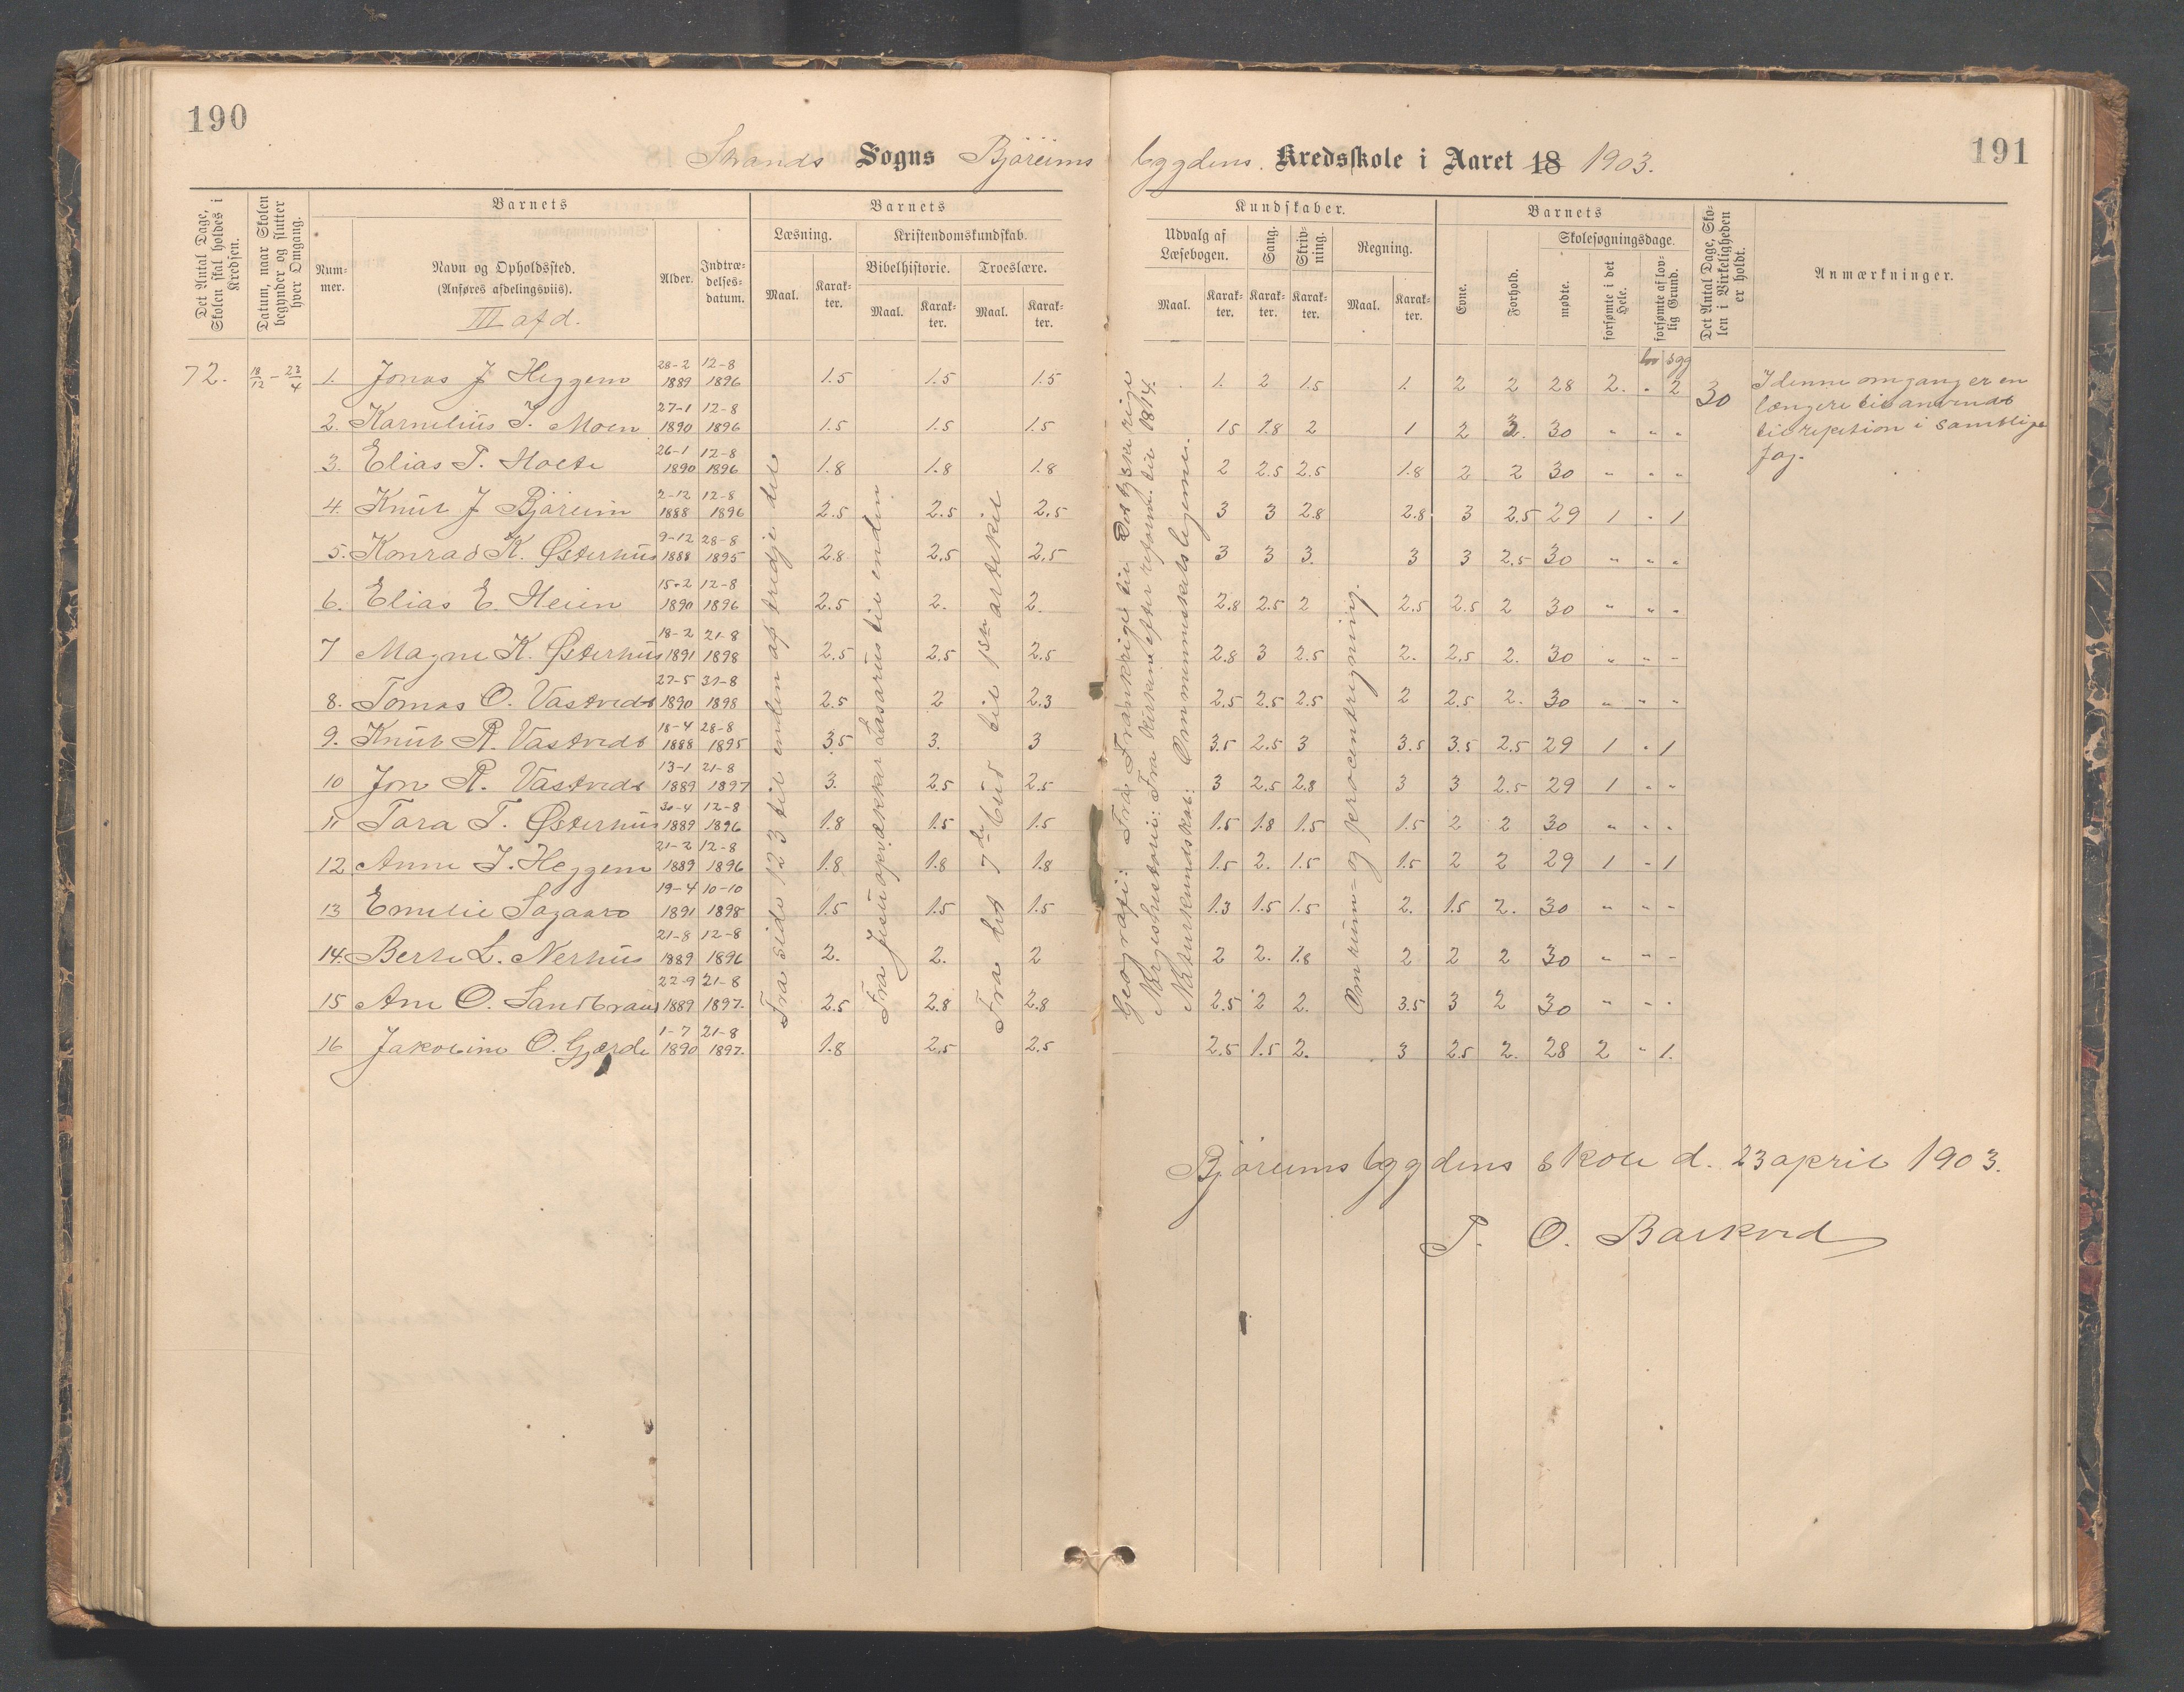 190
191
Strands Sogns Bjøreims bygdens Kredsskole i Aaret 18 1903.
Det Antal Dage, Skolen skal holdes i Kredsen.
Datum, naar Skolen begynder og slutter hver Omgang.
Barnets
Num-mer.
Navn og Opholdssted.
(Anføres afdelingsviis).
III afd.
Alder.
Indtræ-delses-datum.
Barnets
Læsning.
Maal.
Karak-ter.
Kristendomskundskab.
Bibelhistorie.
Troeslære.
Maal.
Karak-ter.
Maal.
Karak-ter.
Kundskaber.
Udvalg af Læsebogen.
Sang.
Skriv-ning.
Regning.
Maal.
Karak-ter.
Karak-ter.
Karak-ter.
Maal.
Karak-ter.
Barnets
Evne.
Forhold.
Skolesøgningsdage.
mødte.
forsømte i det Hele.
forsømte af lov-lig Grund.
Det Antal Dage, Sko-len i Virkeligheden er holdt.
Anmærkninger.
lov sgg
72. 18/12 - 23/4 1. Jonas J Heggem 28-2 1889 12-8 1896 1.5 1.5 1.5 1. 2 1.5 1. 2 2 28 2. " 2 30
2. Karnelius T. Moen 27-1 1890 12-8 1896 1.5 1.5 1.5 1.5 1.8 2 1 2 2. 30 " " "
3. Elias T. Holte 26-1 1890 12-8 1896 1.8 1.8 1.8 2 2.5 2.5 1.8 2 2 30 " " "
4. Knut J Bjøreim 2-12 1888 12-8 1896 2.5 2.5 2.5 3 3 2.8 2.8 3 2.5 29 1 " 1
5. Konrad K. Østerhus 9-12 1888 28-8 1895 2.8 2.5 2.5 3 3 3. 3 3 2.5 30 " " "
6. Elias E. Heien 15-2 1890 12-8 1896 2.5 2. 2. 2.8 2.5 2 2.5 2.5 2 30 " " "
7 Magne K. Østerhus 18-2 1891 21-8 1898 2.5 2.5 2.5 2.8 3 2.5 2. 2.5 2. 30 " " "
8. Tomas O. Vastvedt 27-5 1890 31-8 1898 2.5 2 2.3 2.5 2.5 2.5 2 2.5 2. 30 " " "
9. Knut R. Vastvedt 18-4 1888 28-8 1895 3.5 3. 3 3.5 2.5 3 3.5 3.5 2.5 29 1 " 1
10 Jon R. Vastvedt 13-1 1889 21-8 1897 3. 2.5 2.5 3 2.5 2.8 3 3 2.5 29 1 " "
11 Tara T. Østerhus 30-4 1889 12-8 1896 1.8 1.5 1.5 1.5 1.8 1.5 1.5 2 2 30 " " "
12 Anne J. Heggem 21-2 1889 12-8 1896 1.8 1.8 1.8 1.5 2. 1.5 1.5 2 2 29 1 " 1
13 Emelie Sagaard 19-4 1891 10-10 1898 1.5 1.5 1.5 1.3 1.5 1.5 2. 1.5 2. 30 " " "
14. Berte L. Nerhus 21-8 1889 12-8 1896 2. 2. 2 2 2. 1.8 2 2 2 30 " " "
15 Ane O. Sandbraut 22-9 1889 21-8 1897. 2.5 2.8 2.8 2.5 2 2. 3.5 3 2 30 " " "
16 Jakobine O. Gjærde 1-7 1890 21-8 1897. 1.8 2.5 2.5 2.5 1.5 2. 3 2.5 2. 28 2 " 1.
Fra side 123 til enden af tredje del
Fra Jesu opvækker Lasarus til enden
Fra det 7de bud til 1ste artikel
Geografi: Fra Frankrige til Det tyske rige
Norgeshistorie: Fra Kirken efter reform. til 1814.
Naturkundskab: Om menneskets legeme.
Om rum- og procentregning.
I denne omgang er en
længere tid anvendt
til repetion i samtlige
fag.
Bjøreimsbygdens skole d. 23 april 1903.
T. O. Barkved